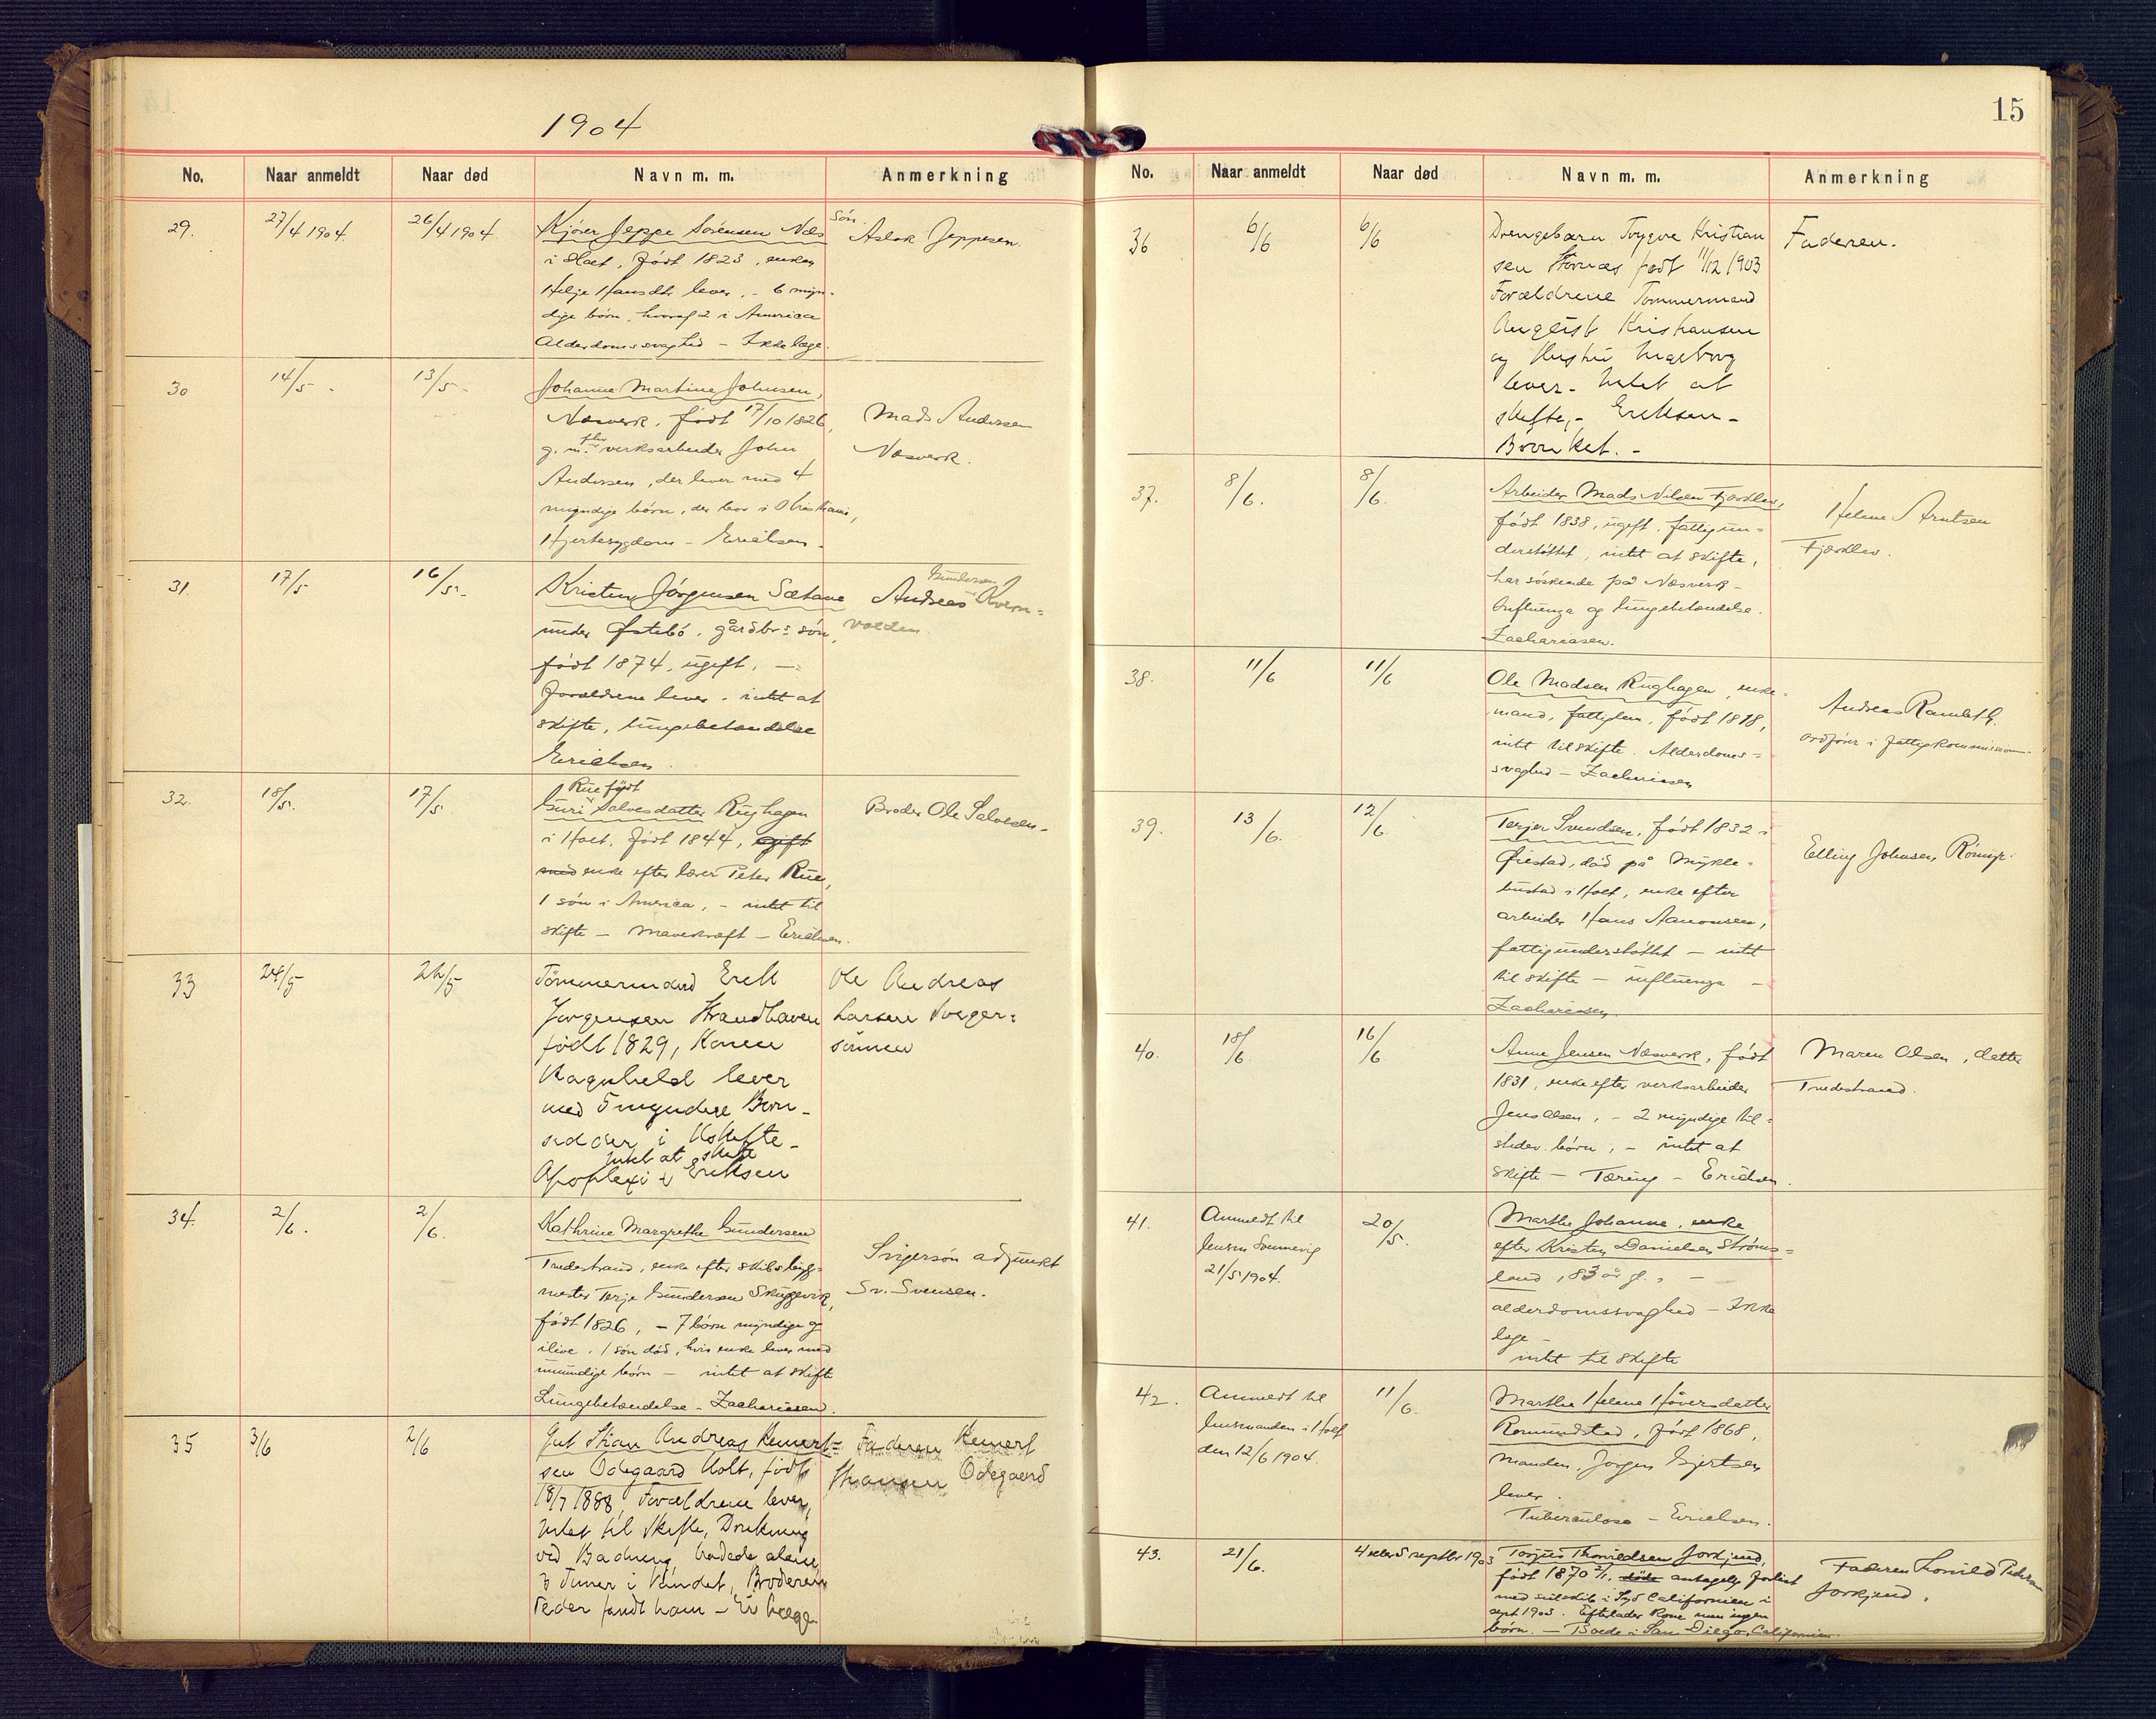 1904
No. Naar anmeldt Naar død Navn m. m. Anmerkning
29. 27/4 1904. 26/4 1904 Kjører Jeppe Sörensen Næs
i Holt, født 1823, enken
Helje Hansdtr lever, - 6 myn-
dige børn, hvoraf 2 i America
Alderdomssvaghed - Ikke læge.
Søn.
Aslak Jeppesen.
30 14/5. 13/5. Johanne Martine Johnsen,
Næsverk, født 17/10 1826,
g. m. verksarbeider John
Andersen, der lever med 4
myndige børn, der bor i Kristiania,
Hjertesygdom - Erichsen.
Mads Andersen
Næsverk.
31. 17/5 16/5. Kristen Jörgensen Sætane
under Østebö, gårdbrs sön,
født 1874, ugift. -
Forældrene lever. intet at
skifte, lungebetændelse
Erichsen.
Gundersen
Andreas Kvern-
volden
32. 18/5. 17/5. Rue født
Guri Salvesdatter Rughagen
i Holt. født 1844, gift
med enke efter lærer Peter Rue,
1 sön i America, - intet til
skifte - Mavekræft - Erichsen.
Broder Ole Salvesen.
33 24/5 22/5 Tömmermand Erik
Jorgensen Strandhaven
født 1829, Konen
Ragnhild lever
med 5 myndige Børn -
sidder i Uskifte -
Intet at skifte
Apoplexi - Eriksen
Ole Andreas
Larsen Sviger-
sönnen
34. 2/6. 2/6. Kathrine Margrethe Gundersen
Tvedestrand, enke efter skibsbygg-
mester Terje Gundersen Skuggevik,
født 1826, - 7 børn myndige og
ilive. 1 sön död, hvis enke lever med
umyndige børn - intet at skifte
Lungebetændelse - Zachariasen.
Svigersön adjunkt
Sv. Svensen.
35 3/6 2/6 Gut Stian Andreas Reinert-
sen Ødegaard Holt, født
18/7 1888, Forældrene lever,
Intet til Skifte, Drukning
ved Badning, badede alene
3 Timer i Vandet, Broderen
Peder fandt ham - Ei Læge
Faderen Reinert
Ødegaard
15
No. Naar anmeldt Naar død Navn m. m. Anmerkning
36 6/6 6/6 Drengebarn Trygve Kristian
sen født 11/12 1903
Forældrene Tømmermand
August Kristiansen
og Ingeborg
lever - Intet at
skifte, - Eriksen -
Faderen.
37. 8/6. 8/6. Arbeider Mads Nilsen Fjærklev,
født 1838, ugift. fattigun-
derstöttet, intet at skifte,
har söskende på Næsverk -
Influenza og lungebetændelse.
Zachariasen.
Helene Arntsen
Fjærklev.
38. 11/6 11/6 Ole Madsen Rughagen, enke-
mand, fattiglem, født 1818,
intet til skifte. Alderdoms-
svaghed - Zachariasen
Andreas Ramleth.
ordförer i fattigkommissionen.
39. 13/6. 12/6. Terjer Svendsen, født 1832 i
Øiestad, død på Mykle-
bustad i Holt, enke efter
arbeider Hans Aanonsen,
fattigunderstöttet - intet
til skifte - influenza -
Zachariasen.
Elling Johnsen, Römyr.
40. 18/6. 16/6. Anne Jensen Næsverk, født
1831, enke efter verksarbeider
Jens Olsen, - 2 myndige til-
stedev. børn, - intet at
skifte - Tæring - Erichsen.
Maren Olsen, datter
Tvedestrand.
41. Anmeldt til
lensm Sonnevig
21/5 1904.
20/5. Marthe Johanne, enke
efter Kristen Danielsen Ströms-
land, 83 år gl., -
alderdomssvaghed - Ikke
læge -
intet til skifte
42. Anmeldt til
lensmanden i Holt
den 12/6 1904.
11/6. Marthe Helene Håversdatter
Romundstad, født 1868,
manden, Jorgen Gjertsen
lever.
Tuberculose - Erichsen.
43. 21/6. 4 eller 5 septbr 1903 Torjus Thorvildsen Jorkjend,
født 1870 2/1. döde antagelig forlist
med seilskib i Syd Californien i
sept 1903. Efterlader Kone men ingen
børn. - Boede i San Diego, Californien.
Faderen Thorvild Pedersen
Jorkjend.